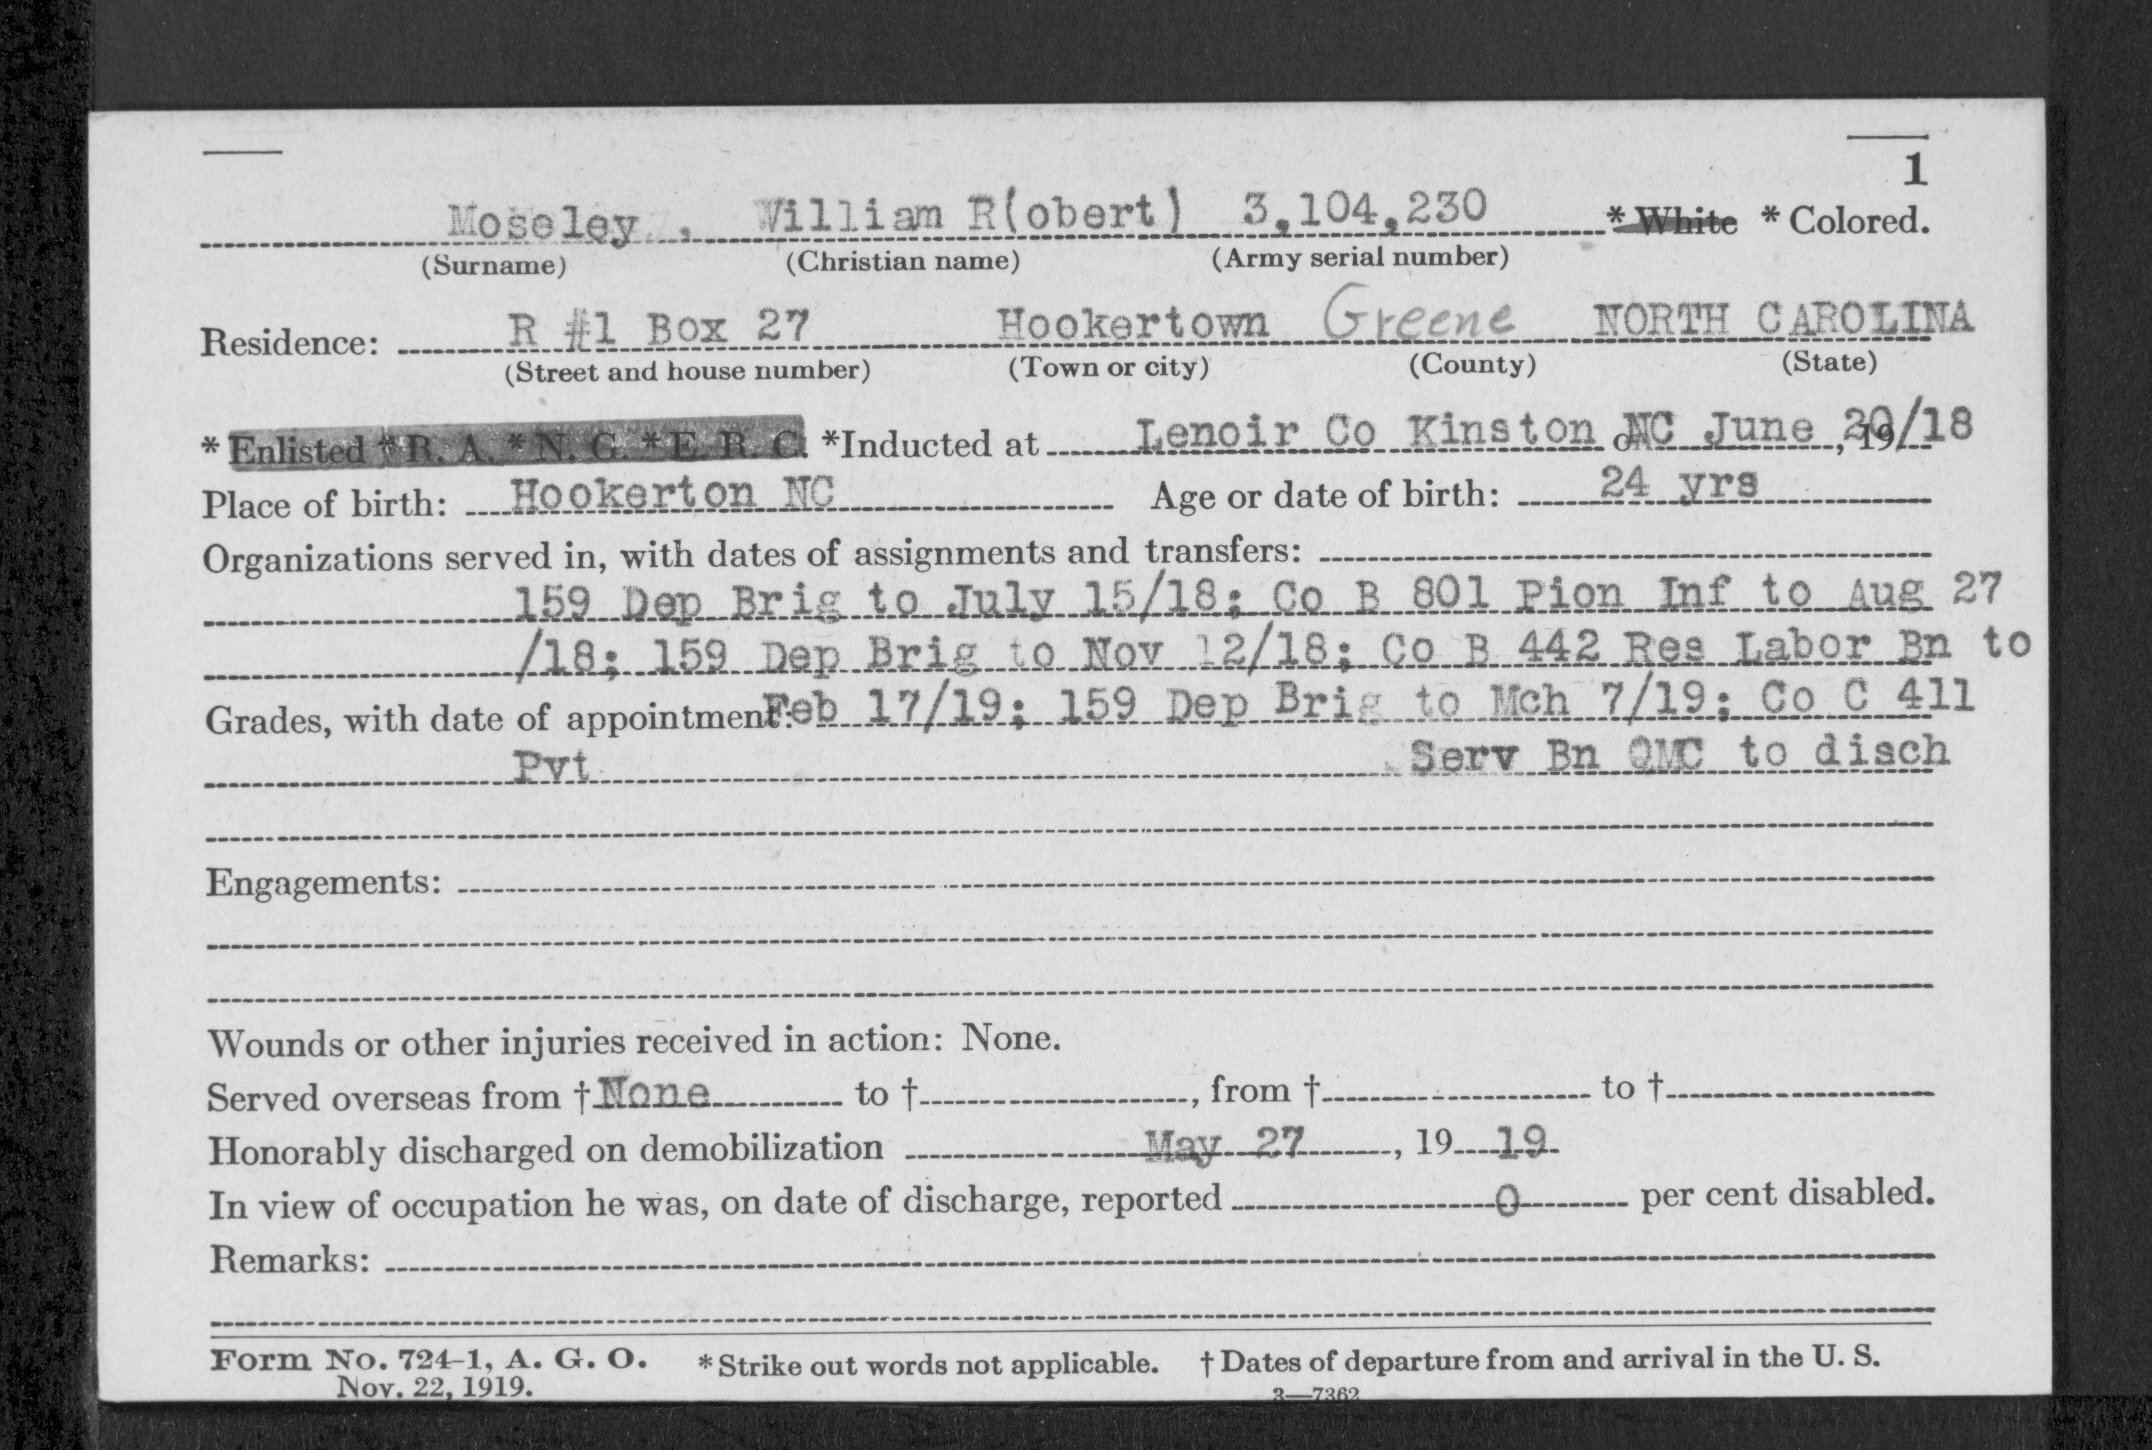 1
Moseley, William R(obert) 3,104,230 * White * Colored.
(Surname) (Christian name) (Army serial number)
Residence: R #1 Box 27 Hookertown Greene NORTH CAROLINA
(Street and house number) (Town or city) (County) (State)
* Enlisted * R. A. * N. G. * E. R. C. *Inducted at Lenoir Co Kinston NC June 20/18
Place of birth: Hookerton NC Age or date of birth: 24 yrs
Organizations served in, with dates of assignments and transfers:
159 Dep Brig to July 15/18; Co B 801 Pion Inf to Aug 27
/18; 159 Dep Brig to Nov 12/18; Co B 442 Res Labor Bn to
Grades, with date of appointment: Feb 17/19; 159 Dep Brig to Mch 7/19; Co C 411
Pvt Serv Bn QMC to disch
Engagements:
Wounds or other injuries received in action: None.
Served overseas from † None to †, from † to †
Honorably discharged on demobilization May 27, 19 19
In view of occupation he was, on date of discharge, reported 0 per cent disabled.
Remarks:
Form No. 724-1, A. G. O. * Strike out words not applicable. † Dates of departure from and arrival in the U. S.
Nov. 22, 1919. 3—7362